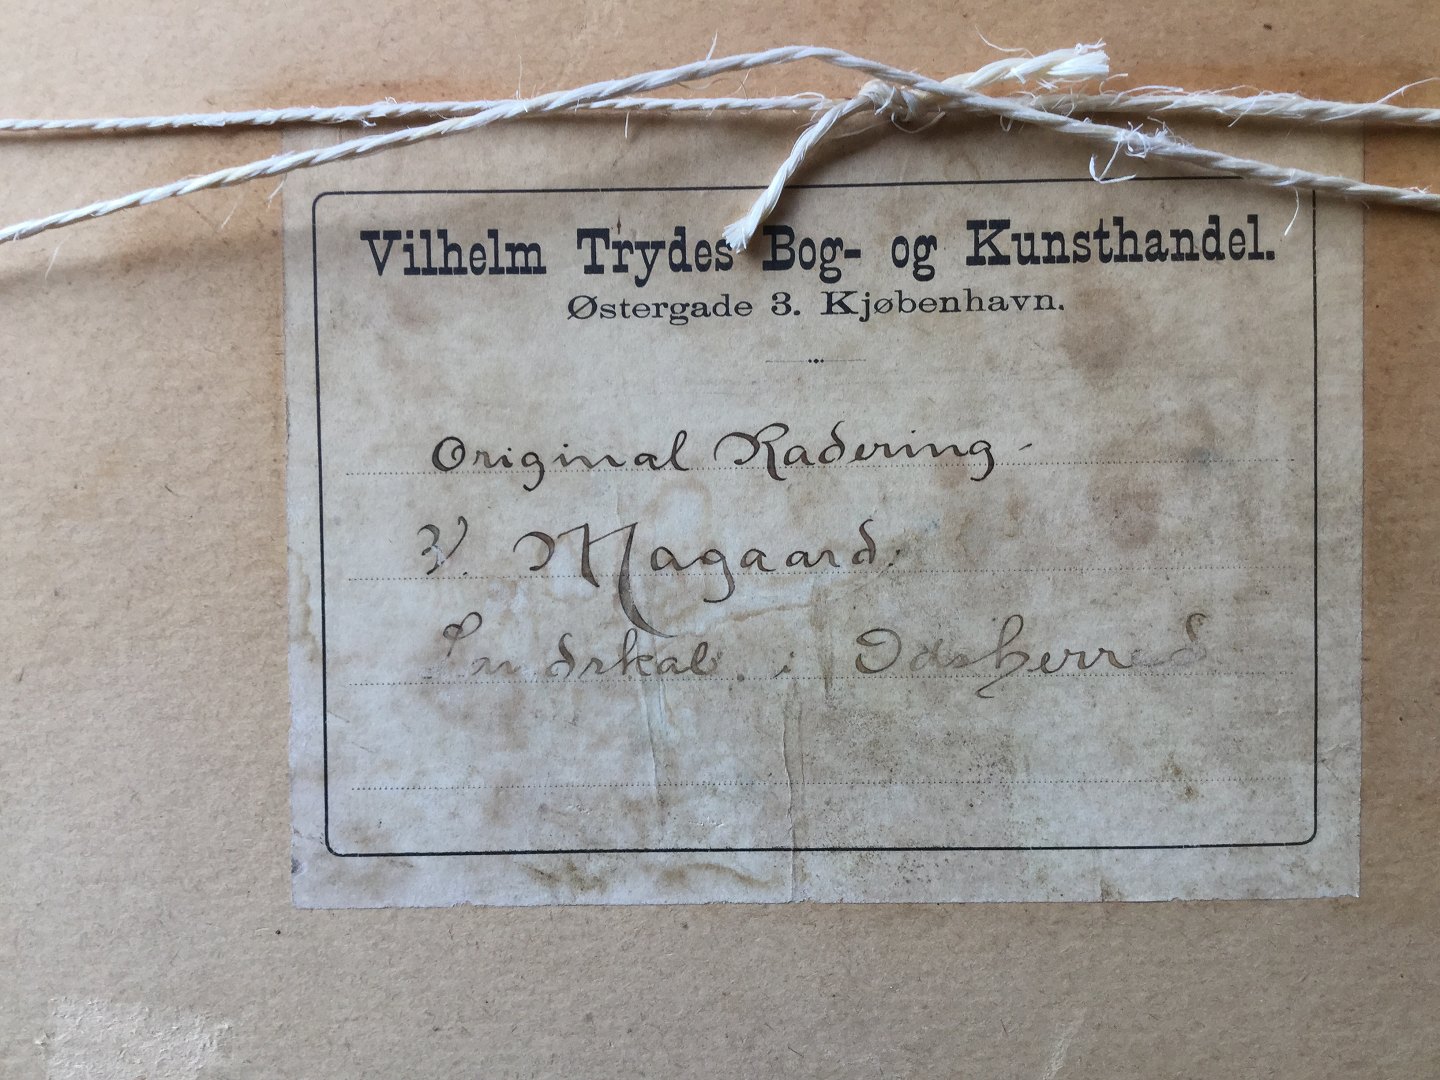 Vilhelm Trydes Bog- og Kunsthandel.
Østergade 3. Kjøbenhavn.
Original Radering -
V. Magaard.
Landskab. i Odsherred